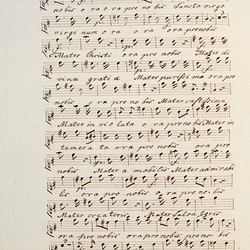 nobis o ra o ra pro nobis Sancta virgo
virgi num o ra o ra ora pro nobis
Mater Christi ora pro nobis Mater di
vinæ gratiæ Mater purissi ma ora pro
nobis ora pro nobis Mater castissima
Mater in vio lata o ra pro nobis Mater in
temera ta ora pro nobis ora pro no
bis Mater a mabilis Mater admirabi
lis ora pro nobis ora pro no bis
Mater creatoris Mater Salvatoris
ora pro nobis ora pro nobis pro no bis